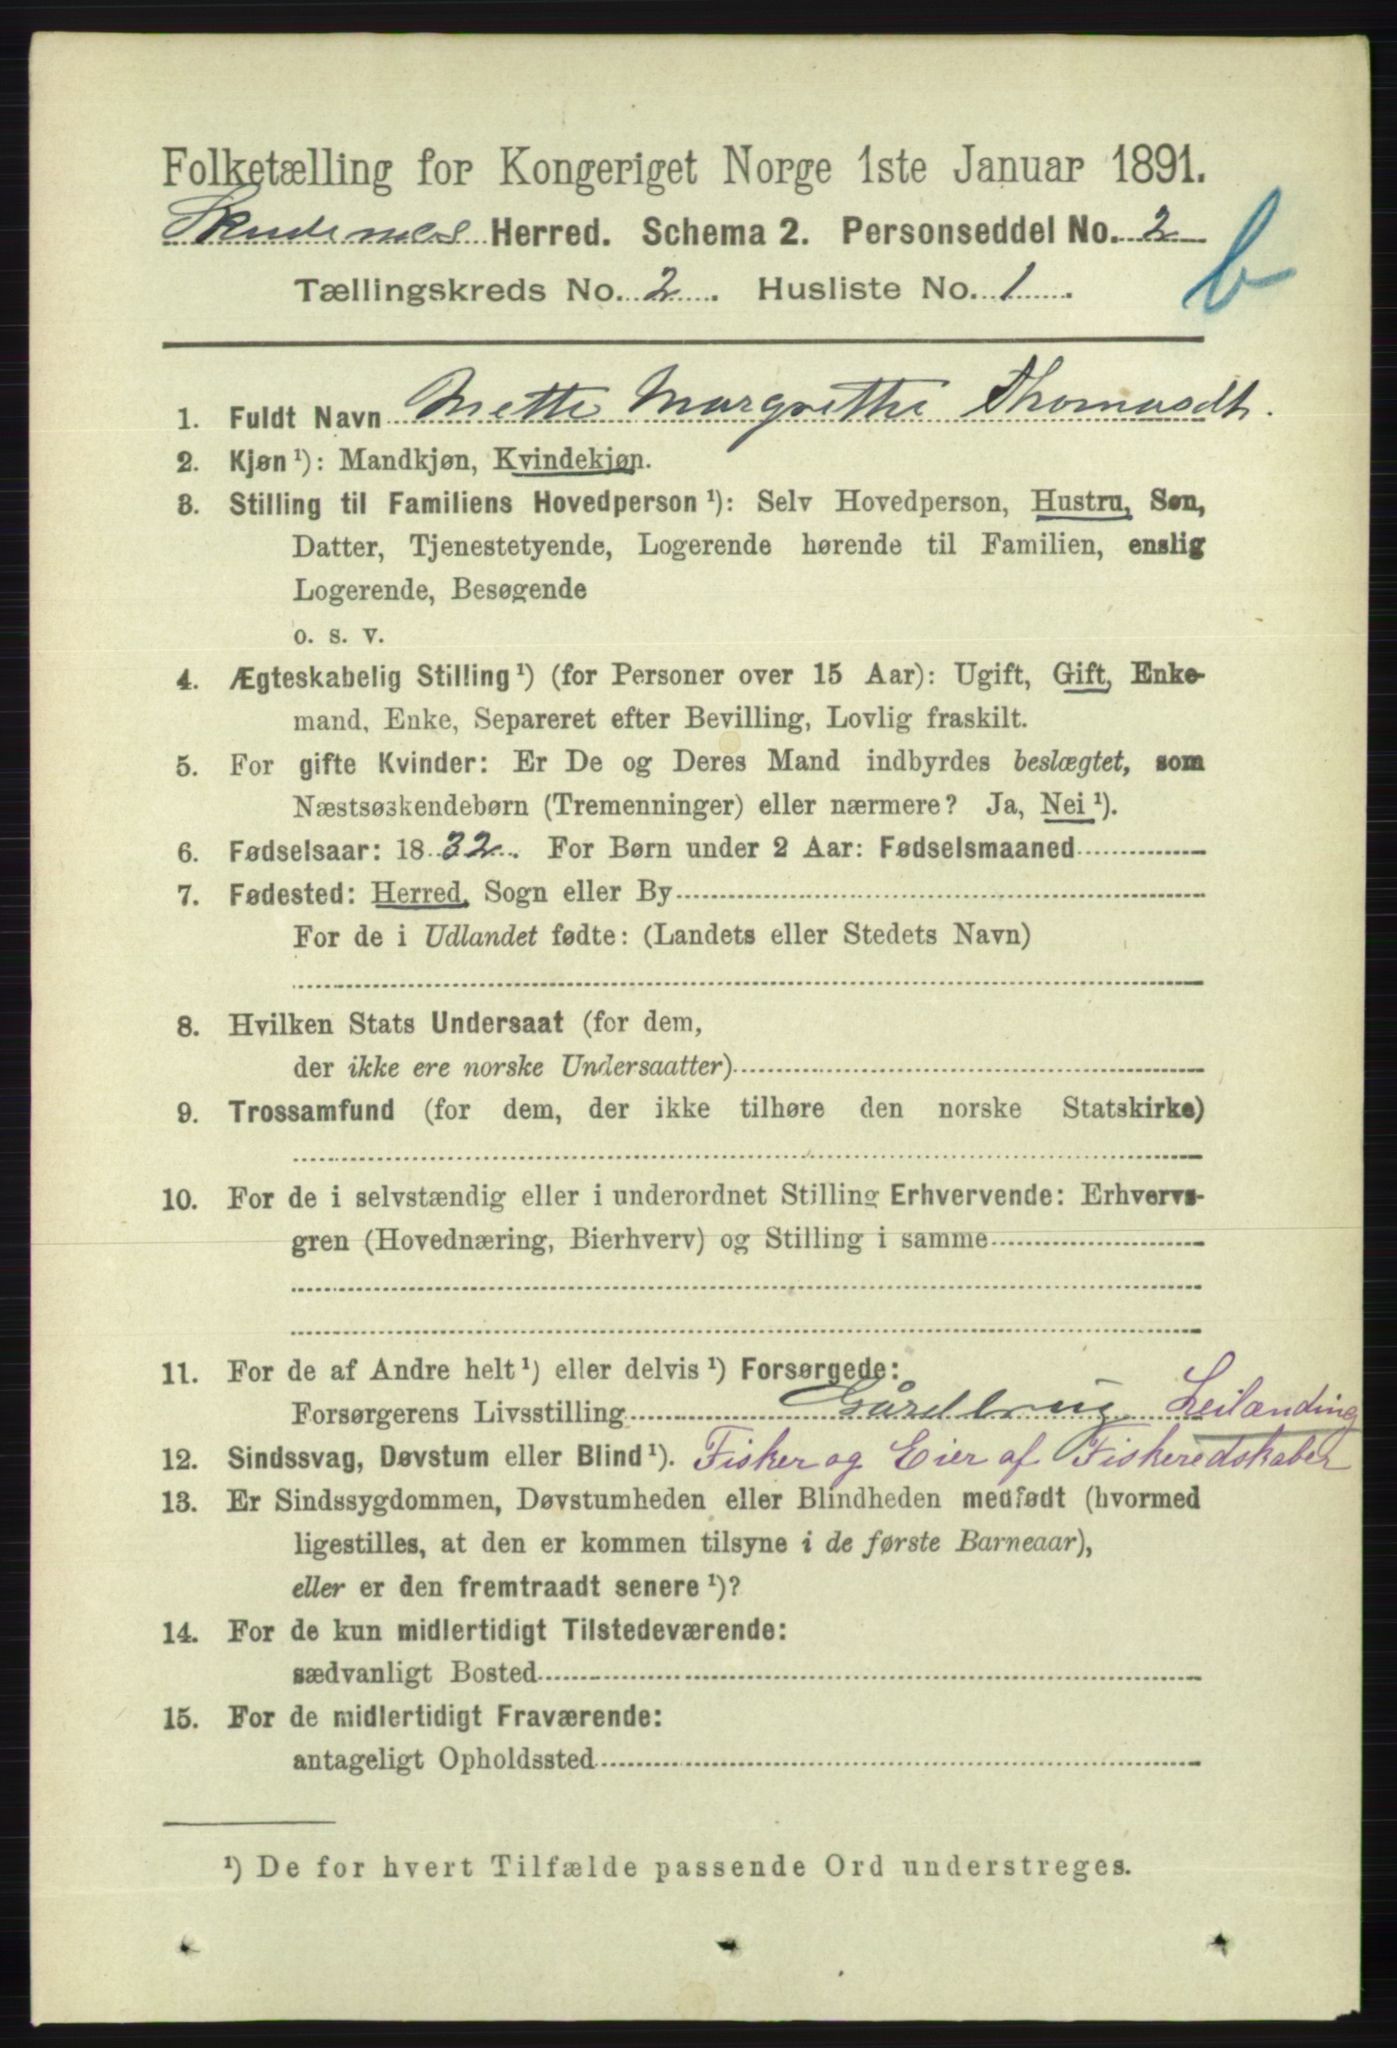 Folketælling for Kongeriget Norge 1ste Januar 1891.
Skudesnes Herred. Schema 2. Personseddel No. 2
b
Tællingskreds No. 2. Husliste No. 1.
1. Fuldt Navn Mette Margrethe Thomasdt.
2. Kjøn ¹): Mandkjøn, Kvindekjøn.
3. Stilling til Familiens Hovedperson ¹): Selv Hovedperson, Hustru, Søn,
Datter, Tjenestetyende, Logerende hørende til Familien, enslig
Logerende, Besøgende
o. s. v.
4. Ægteskabelig Stilling ¹) (for Personer over 15 Aar): Ugift, Gift, Enke-
mand, Enke, Separeret efter Bevilling, Lovlig fraskilt.
5. For gifte Kvinder: Er De og Deres Mand indbyrdes beslægtet, som
Næstsøskendebørn (Tremenninger) eller nærmere? Ja, Nei ¹).
6. Fødselsaar: 1832. For Børn under 2 Aar: Fødselsmaaned
7. Fødested: Herred, Sogn eller By
For de i Udlandet fødte: (Landets eller Stedets Navn)
8. Hvilken Stats Undersaat (for dem,
der ikke ere norske Undersaatter)
9. Trossamfund (for dem, der ikke tilhøre den norske Statskirke)
10. For de i selvstændig eller i underordnet Stilling Erhvervende: Erhvervs-
gren (Hovednæring, Bierhverv) og Stilling i samme
11. For de af Andre helt ¹) eller delvis ¹) Forsørgede:
Forsørgerens Livsstilling Gårdbrug Leilænding
12. Sindssvag, Døvstum eller Blind ¹). Fisker og Eier af Fiskeredskaber
13. Er Sindssygdommen, Døvstumheden eller Blindheden medfødt (hvormed
ligestilles, at den er kommen tilsyne i de første Barneaar),
eller er den fremtraadt senere ¹)?
14. For de kun midlertidigt Tilstedeværende:
sædvanligt Bosted
15. For de midlertidigt Fraværende:
antageligt Opholdssted
¹) De for hvert Tilfælde passende Ord understreges.